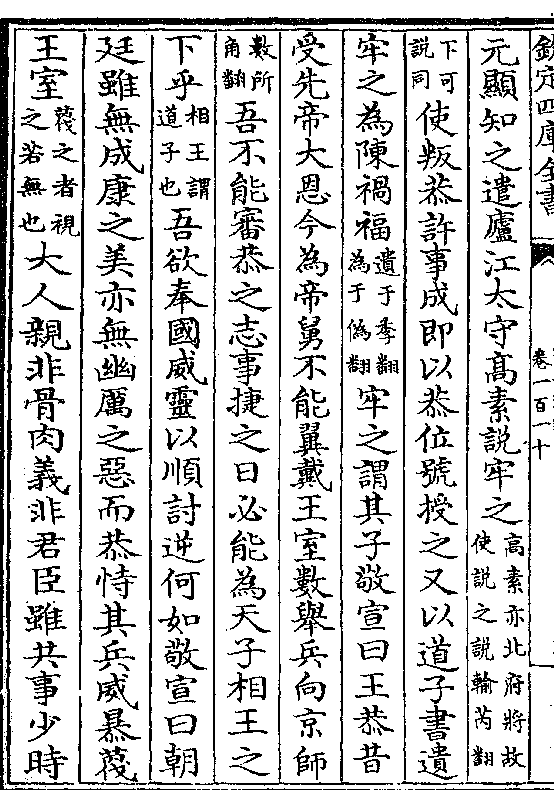 欽定四庫全書 卷一百一十
元顯知之遣廬江太守高素說牢之高素亦北府將故使說之說輸芮翻
下可說同使叛恭許事成即以恭位號授之又以道子書遺
牢之為陳禍福遺于季翻為于偽翻牢之謂其子敬宣曰王恭昔
受先帝大恩今為帝舅不能翼戴王室數舉兵向京師
數所角翻吾不能審恭之志事捷之日必能為天子相王之
下乎相王謂道子也吾欲奉國威靈以順討逆何如敬宣曰朝
廷雖無成康之美亦無幽厲之惡而恭恃其兵威暴蔑
王室蔑之者視之若無也大人親非骨肉義非君臣雖共事少時